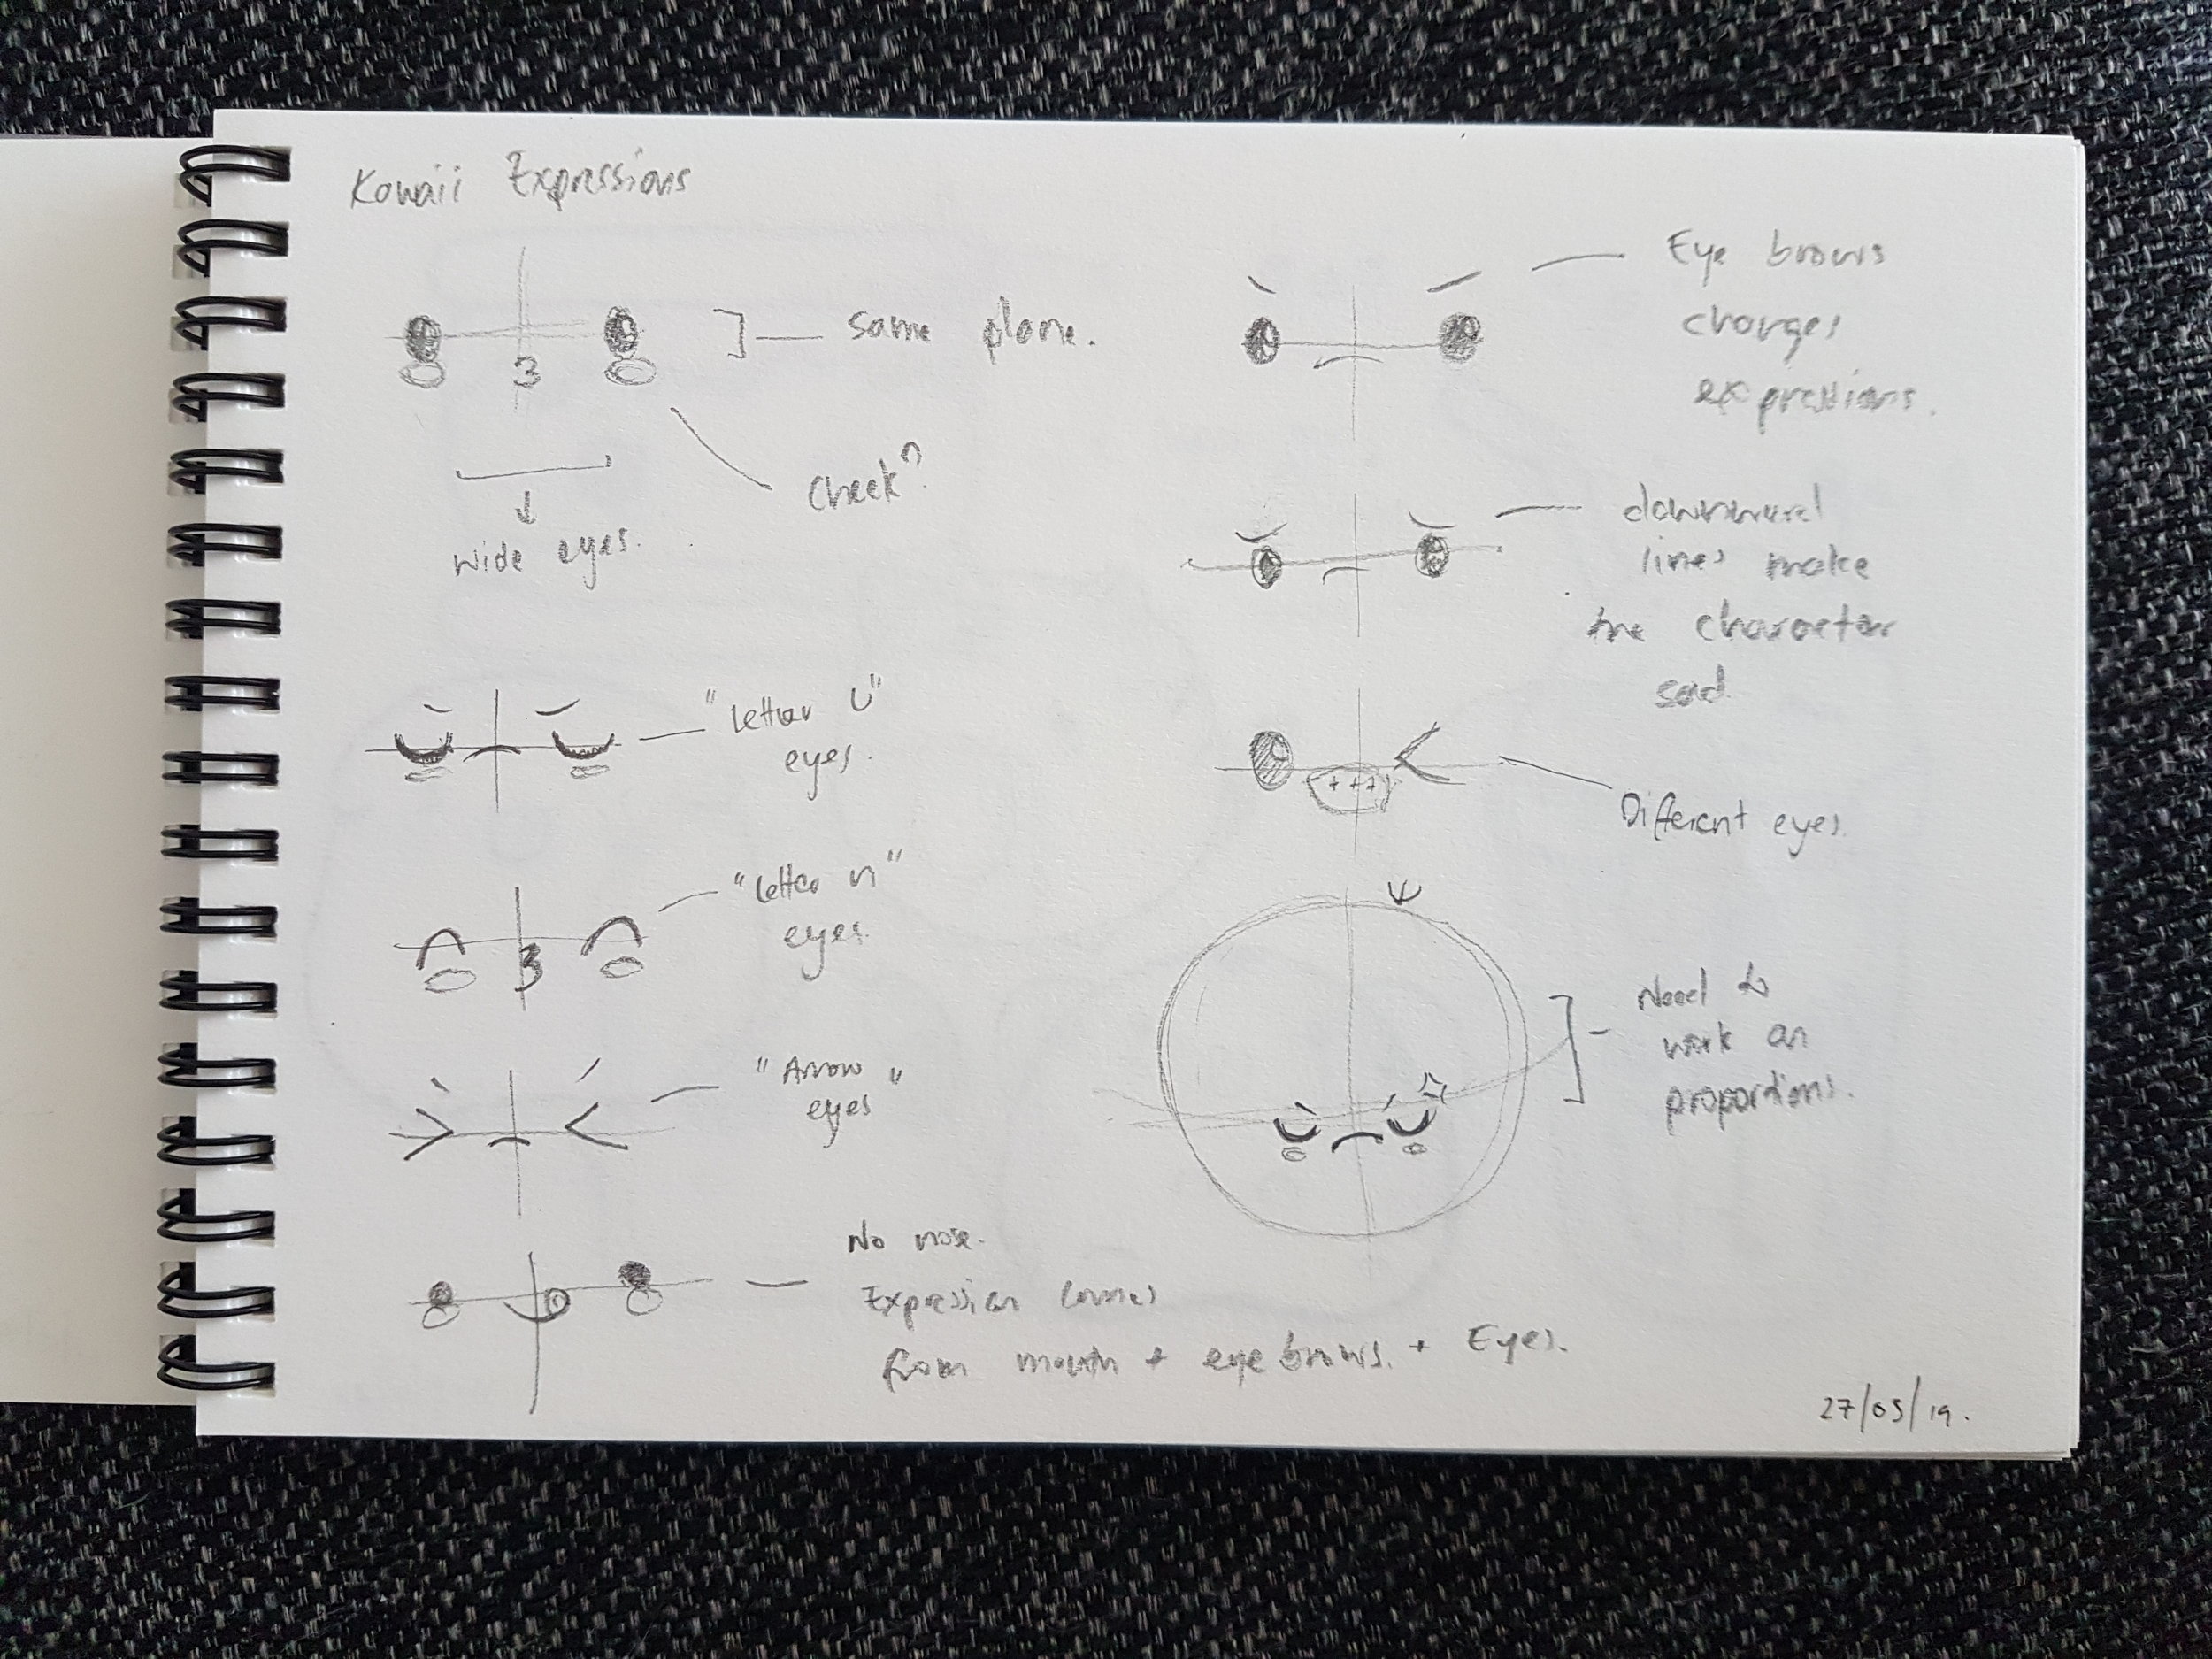 Kowaii Expressions
same plane.
Cheek?
wide eyes.
"letter U"
eyes.
"letter n"
eyes.
"Arrow
eyes"
No nose.
Expression comes
from mouth + eyebrows. + Eyes.
Eye brows
changes
expressions.
downward
lines make
the character
sad
Different eyes.
Need to
work on
proportions.
27/05/19.